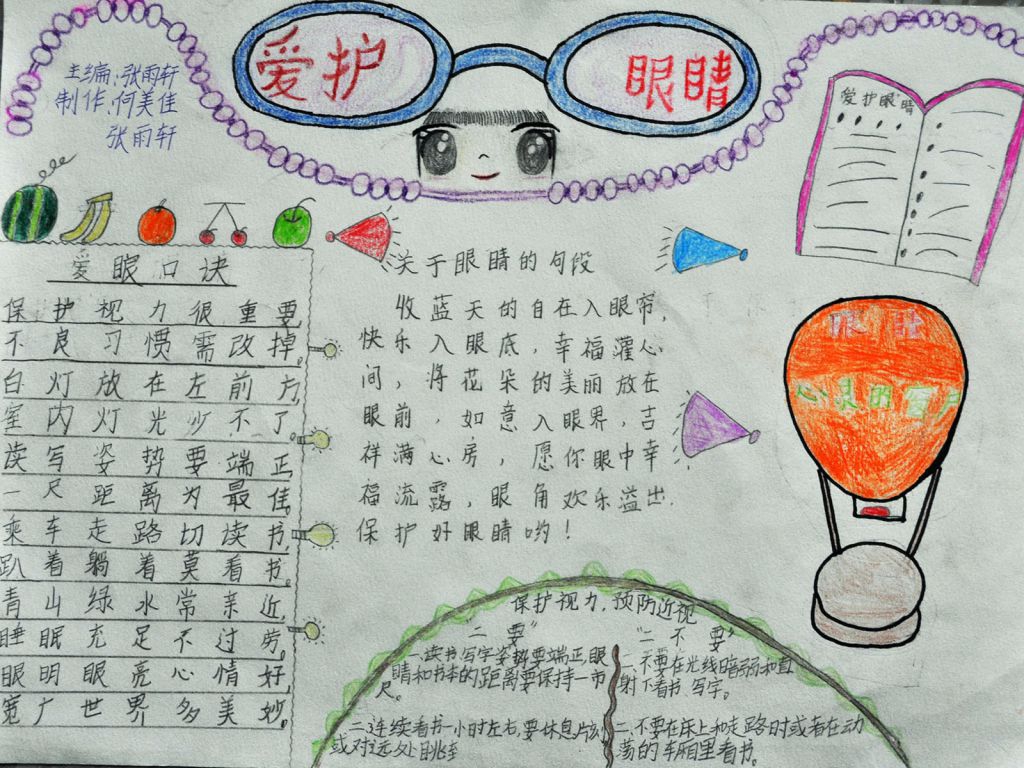 爱护 眼睛
主编:张雨轩
制作:何美佳
张雨轩
爱护眼睛
爱眼口诀
保护视力很重要
不良习惯需改掉。
台灯放在左前方
室内灯光少不了
读写姿势要端正
一尺距离为最佳
乘车走路切读书
趴着躺着莫看书。
青山绿水常亲近
睡眠充足不过劳。
眼明眼亮心情好,
宽广世界多美妙。
关于眼睛的句段
收蓝天的自在入眼帘,
快乐入眼底,幸福灌心
间,将花朵的美丽放在
眼前,如意入眼界,吉
祥满心房,愿你眼中幸
福流露,眼角欢乐溢出.
保护好眼睛哟!
心灵的窗户
保护视力,预防近视
"二要"
一.读书写字姿势要端正,眼
睛和书本的距离要保持一市
尺。
二.连续看书一小时左右,要休息片刻
或对远处眺
"二不要"
一.不要在光线暗弱和直
射下看书、写字。
二.不要在床上和走路时或者在动
荡的车厢里看书。